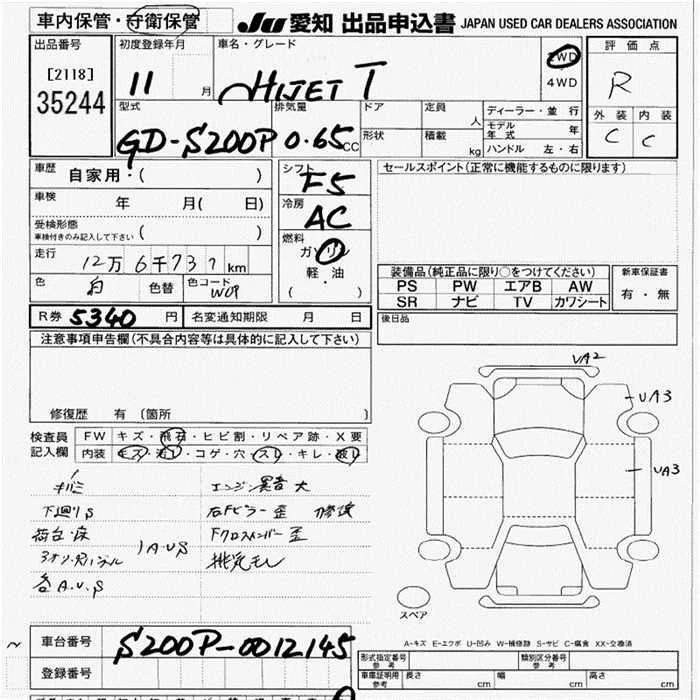 車内保管・守衛保管 JU 愛知 出品申込書 JAPAN USED CAR DEALERS ASSOCIATION
出品番号 初度登録年月 車名・グレード 評価点
[2118] 11 月 HIJET T 2WD R
35244 4WD
型式 排気量 ドア 定員 人 ディーラー・並行 外装 内装
GD-S200P 0.65 CC 形状 積載 kg モデル年式 年 C C
ハンドル 左・右
車歴 自家用・( ) シフト F5 セールスポイント(正常に機能するものに限ります)
車検 年 月( 日) 冷房 AC
受検形態 ( )
車検付きのみ記入して下さい
燃料
ガソリン
走行 12万6千737km 軽・油
( )
色 白 色替 色コード W09
装備品(純正品に限り○をつけてください) 新車保証書
PS PW エアB AW 有・無
SR ナビ TV カワシート
R券 5340 円 名変通知期限 月 日 後日品
注意事項申告欄(不具合内容等は具体的に記入して下さい)
修復歴 有 (箇所 )
VA2
UA3
UA3
検査員 FW キズ・飛石・ヒビ割・リペア跡・X要
記入欄 内装 キズ・汚レ・コゲ・穴・スレ・キレ・破レ
エンジン異音 大
下廻りS 右Fピラー歪 修復
荷台・床 Fクロスメンバー歪
1A・US 排気モレ
各A.U.S
スペア
A-キズ E-エクボ U-凹み W-補修跡 S-サビ C-腐食 XX-交換済
車台番号 S200P-0012145
登録番号
形式指定番号 参考 類別区分番号 参考
車庫証明用 参考 長さ cm 幅 cm 高さ cm